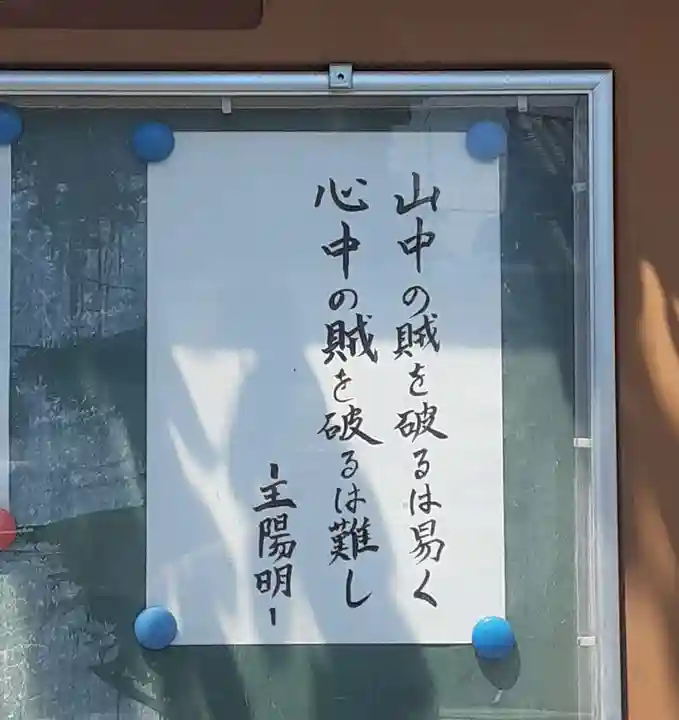 山中の賊を破るは易く
心中の賊を破るは難し
-王陽明-